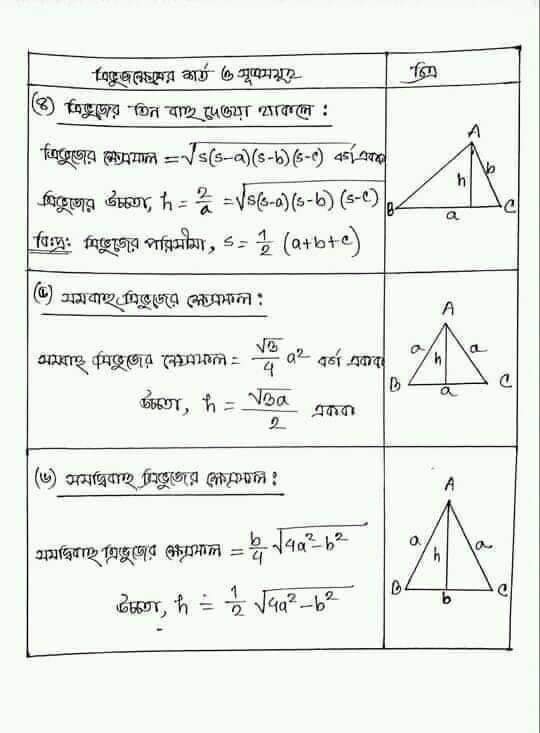 ত্রিভুজক্ষেত্রের শর্ত ও সূত্রসমূহ
চিত্র
(৪) ত্রিভুজের তিন বাহু দেওয়া থাকলে:
ত্রিভুজের ক্ষেত্রফল = √s(s-a)(s-b)(s-c) বর্গ একক
ত্রিভুজের উচ্চতা, h = 2/a = √s(s-a)(s-b)(s-c)
বিঃদ্রঃ ত্রিভুজের পরিসীমা, s = 1/2 (a+b+c)
A
h
b
B
a
C
(৫) সমবাহু ত্রিভুজের ক্ষেত্রফল:
সমবাহু ত্রিভুজের ক্ষেত্রফল = √3/4 a² বর্গ একক
উচ্চতা, h = √3a/2 একক
A
a
h
a
B
a
C
(৬) সমদ্বিবাহু ত্রিভুজের ক্ষেত্রফল:
সমদ্বিবাহু ত্রিভুজের ক্ষেত্রফল = b/4 √4a²-b²
উচ্চতা, h = 1/2 √4a²-b²
A
a
h
a
B
b
C